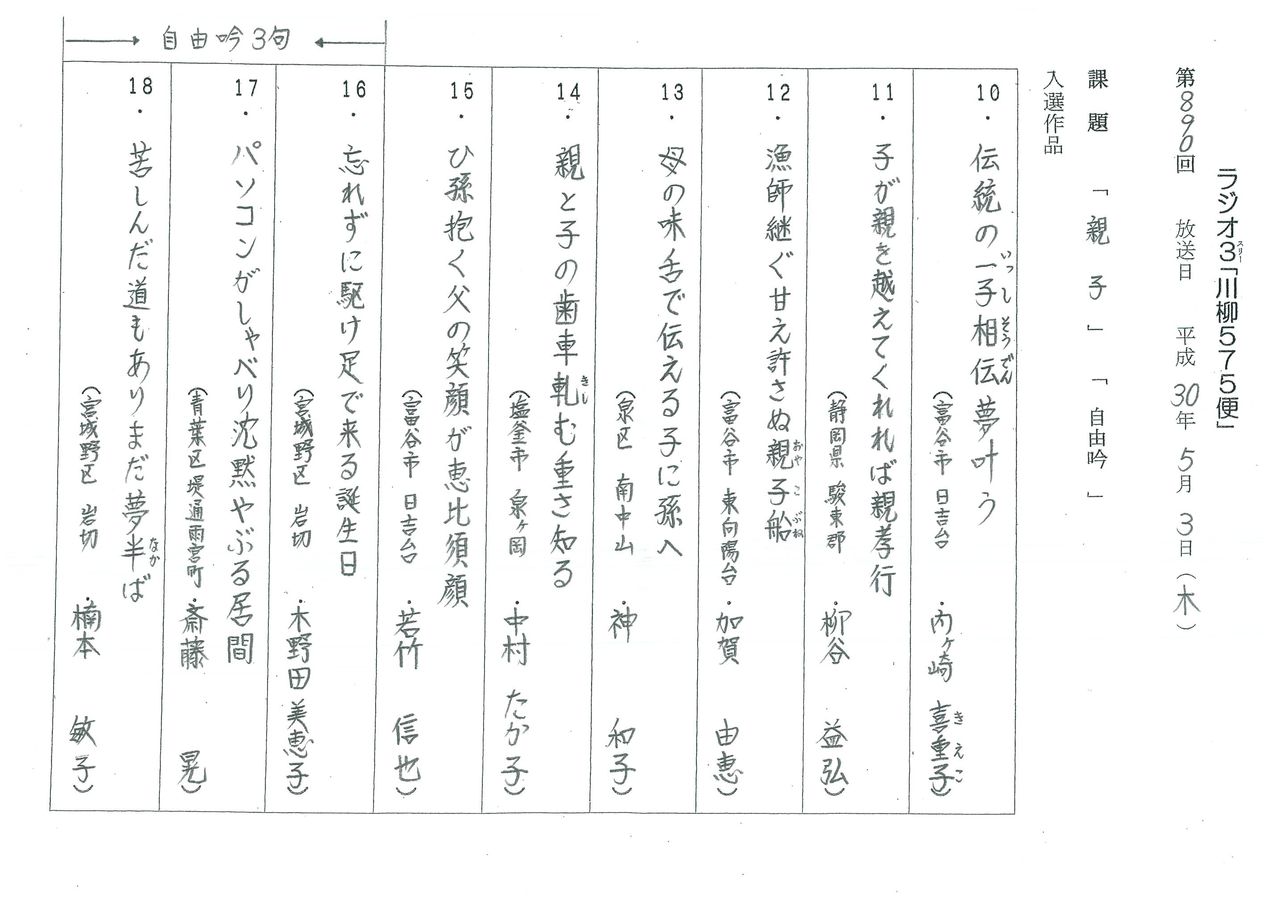 ラジオ3「川柳575便」
スリー
第890回 放送日 平成30年5月3日(木)
課題 「親子」「自由吟」
入選作品
10・伝統の一子相伝夢叶う
いっしそうでん
(富谷市 日吉台・内ヶ崎 喜重子)
きえこ
11・子が親を越えてくれれば親孝行
(静岡県 駿東郡・柳谷 益弘)
12・漁師継ぐ甘え許さぬ親子船
おやこぶね
(富谷市 東向陽台・加賀 由恵)
13・母の味舌で伝える子に孫へ
(泉区 南中山・神 和子)
14・親と子の歯車軋む重さ知る
きし
(塩釜市 泉ヶ岡・中村 たか子)
15・ひ孫抱く父の笑顔が恵比須顔
(富谷市 日吉台・若竹 信也)
自由吟3句
16・忘れずに駆け足で来る誕生日
(宮城野区 岩切・木野田 美恵子)
17・パソコンがしゃべり沈黙やぶる居間
(青葉区 堤通雨宮町・斎藤 晃)
18・苦しんだ道もありまだ夢半ば
なか
(宮城野区 岩切・楠本 敏子)